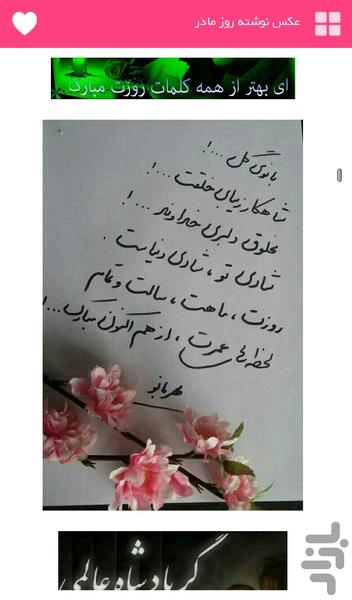 عکس نوشته روز مادر
ای بهتر از همه کلمات روزت مبارک
بانوی گل ...!
شاهکار زیبای خلقت ...!
مخلوق دلبری خداوند ...!
شادی تو ، شادی دنیاست .
روزت ، ماهت ، سالت و تمام
لحظه های عمرت ، از هم اکنون مبارک ...!
مهربانو
گر پادشاه عالمی
بازار